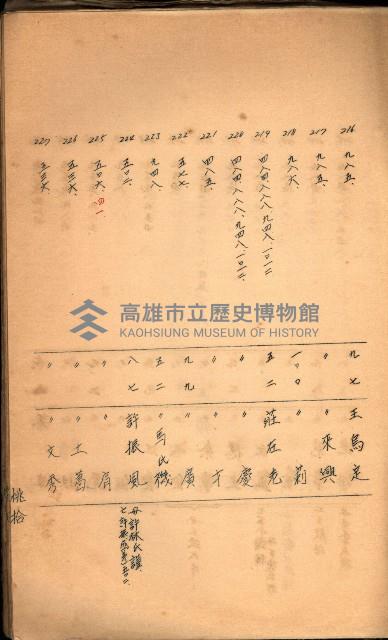 216 九八五. 九七 王馬定
217 九八五. 〃 〃來興
218 九八六. 一〇〇 〃莉
219 四八四.八八八.九四八.一〇一二. 五二 莊在老
220 四八四.八八八.九四八.一〇一二. 〃 〃慶
221 四八五. 〃 〃才
222 五七七. 九九 〃廣
223 九四八. 五二 〃馬氏機
224 五〇二. 八七 許振風
225 五〇六. 四一 〃 〃有
226 五三六. 〃 〃土萬
227 三三六. 〃 〃文秀
桃拾
高雄市立歷史博物館
KAOHSIUNG MUSEUM OF HISTORY